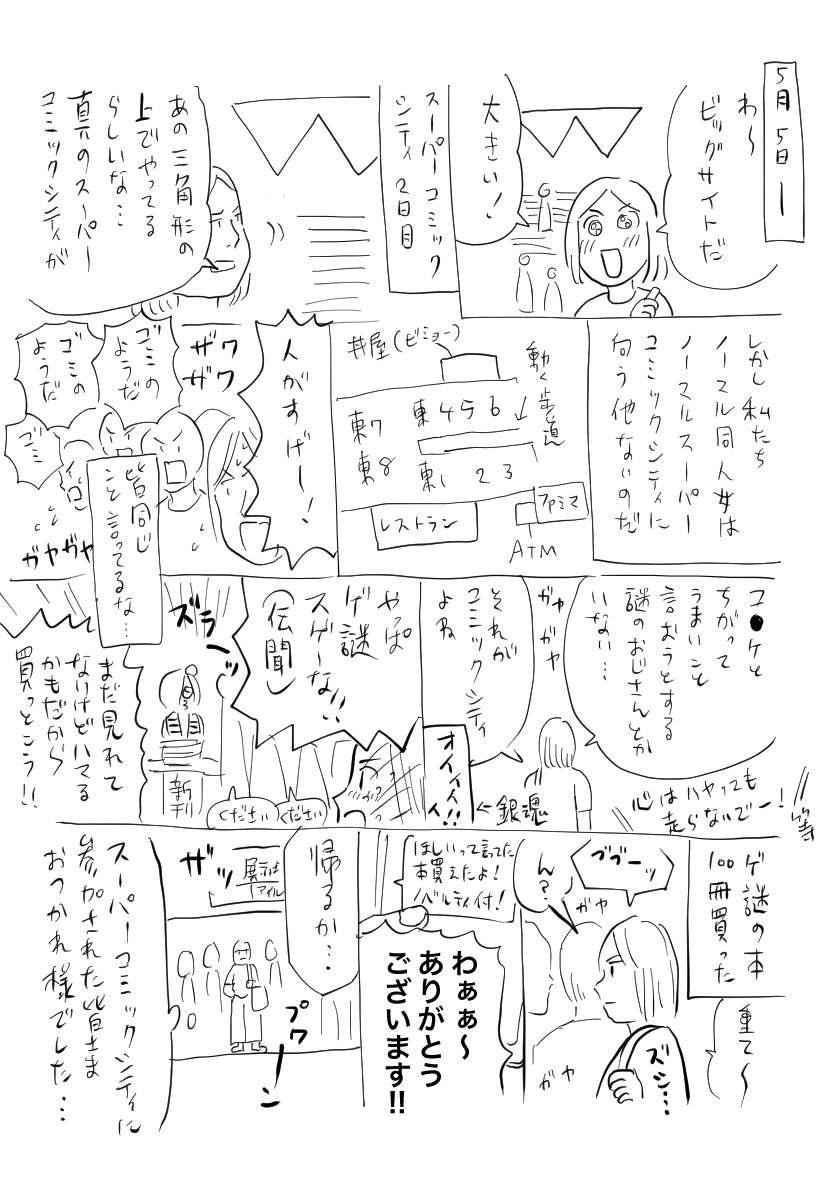 5月5日ー
わ〜
ビッグサイトだ
大きい!
スーパーコミック
シティ2日目
あの三角形の
上でやってる
らしいな…
真のスーパー
コミックシティが
しかし私たち
ノーマル同人女は
ノーマルスーパー
コミックシティに
向う他ないのだ
動く歩道
丼屋(ビミョー)
東456
東7
東8
東1 2 3
レストラン
ファミマ
ATM
人がすげー!
ザワ
ザワ
ゴミの
ようだ
ゴミの
ようだ
ゴミ
皆同じ
こと言ってるな…
ガヤガヤ
コ●ケと
ちがって
うまいこと
言おうとする
謎のおじさんとか
いない…
ガヤ
ガヤ
それが
コミックシティ
よね
心はハヤっても
走らないでー!
等
オイィィ!!
←銀魂
やっぱ
ゲ謎
スゲーな!!
(伝聞)
ズラーッ
新刊
ください
ください
まだ見れて
ないけどハマる
かもだから
買っとこう!!
ゲ謎の本
100冊買った
重て〜
ズシ…
ブブーッ
ん?
ガヤ
ガヤ
ほしいって言ってた
本買えたよ!
ノベルティ付!
わぁぁ〜
ありがとう
ございます!!
帰るか…
ザッ
プワーン
スーパーコミックシティに
参加された皆さま
おつかれ様でした…